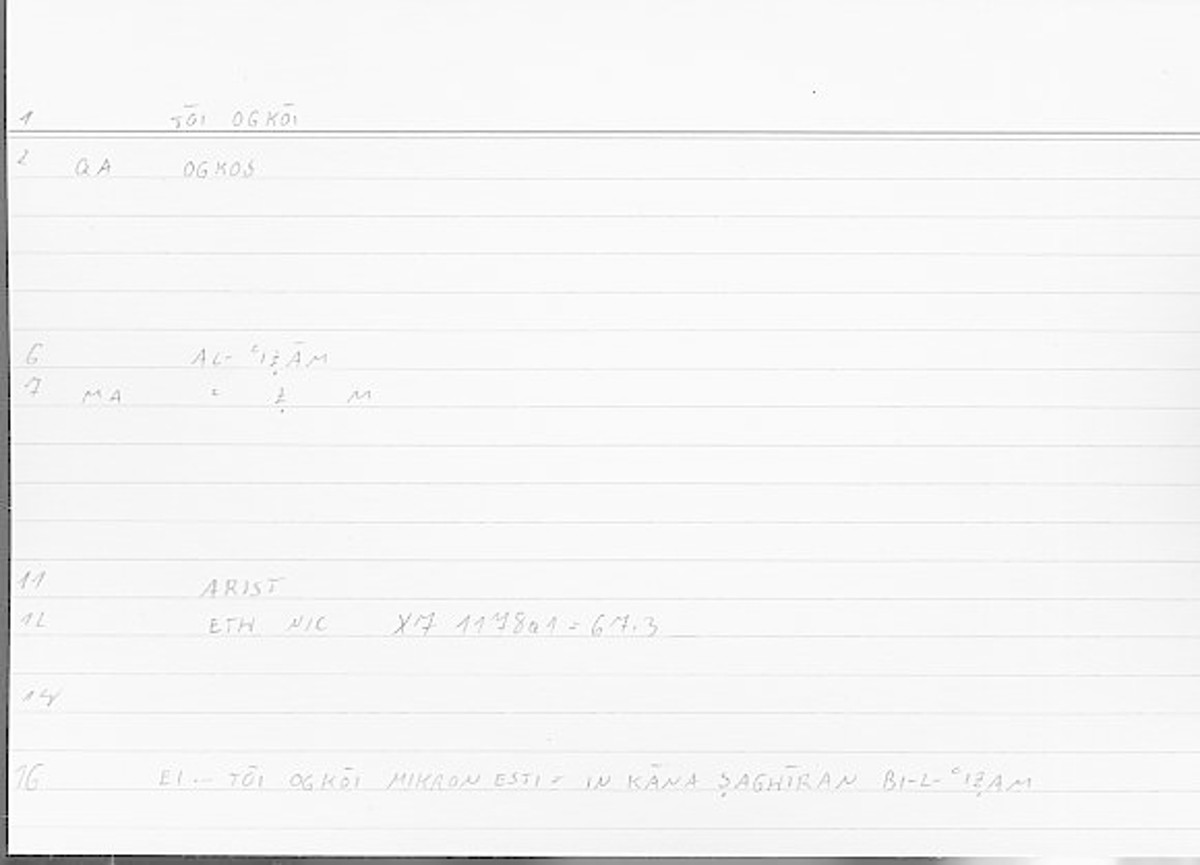 1 TŌI OGKŌI
2 QA OGKOS
6 AL- ʿIẒĀM
7 MA ʿ Ẓ M
11 ARIST
12 ETH NIC X7 1178a1 = 67.3
14
16 EI ... TŌI OGKŌI MIKRON ESTI = IN KĀNA ṢAGHĪRAN BI-L- ʿIẒAM